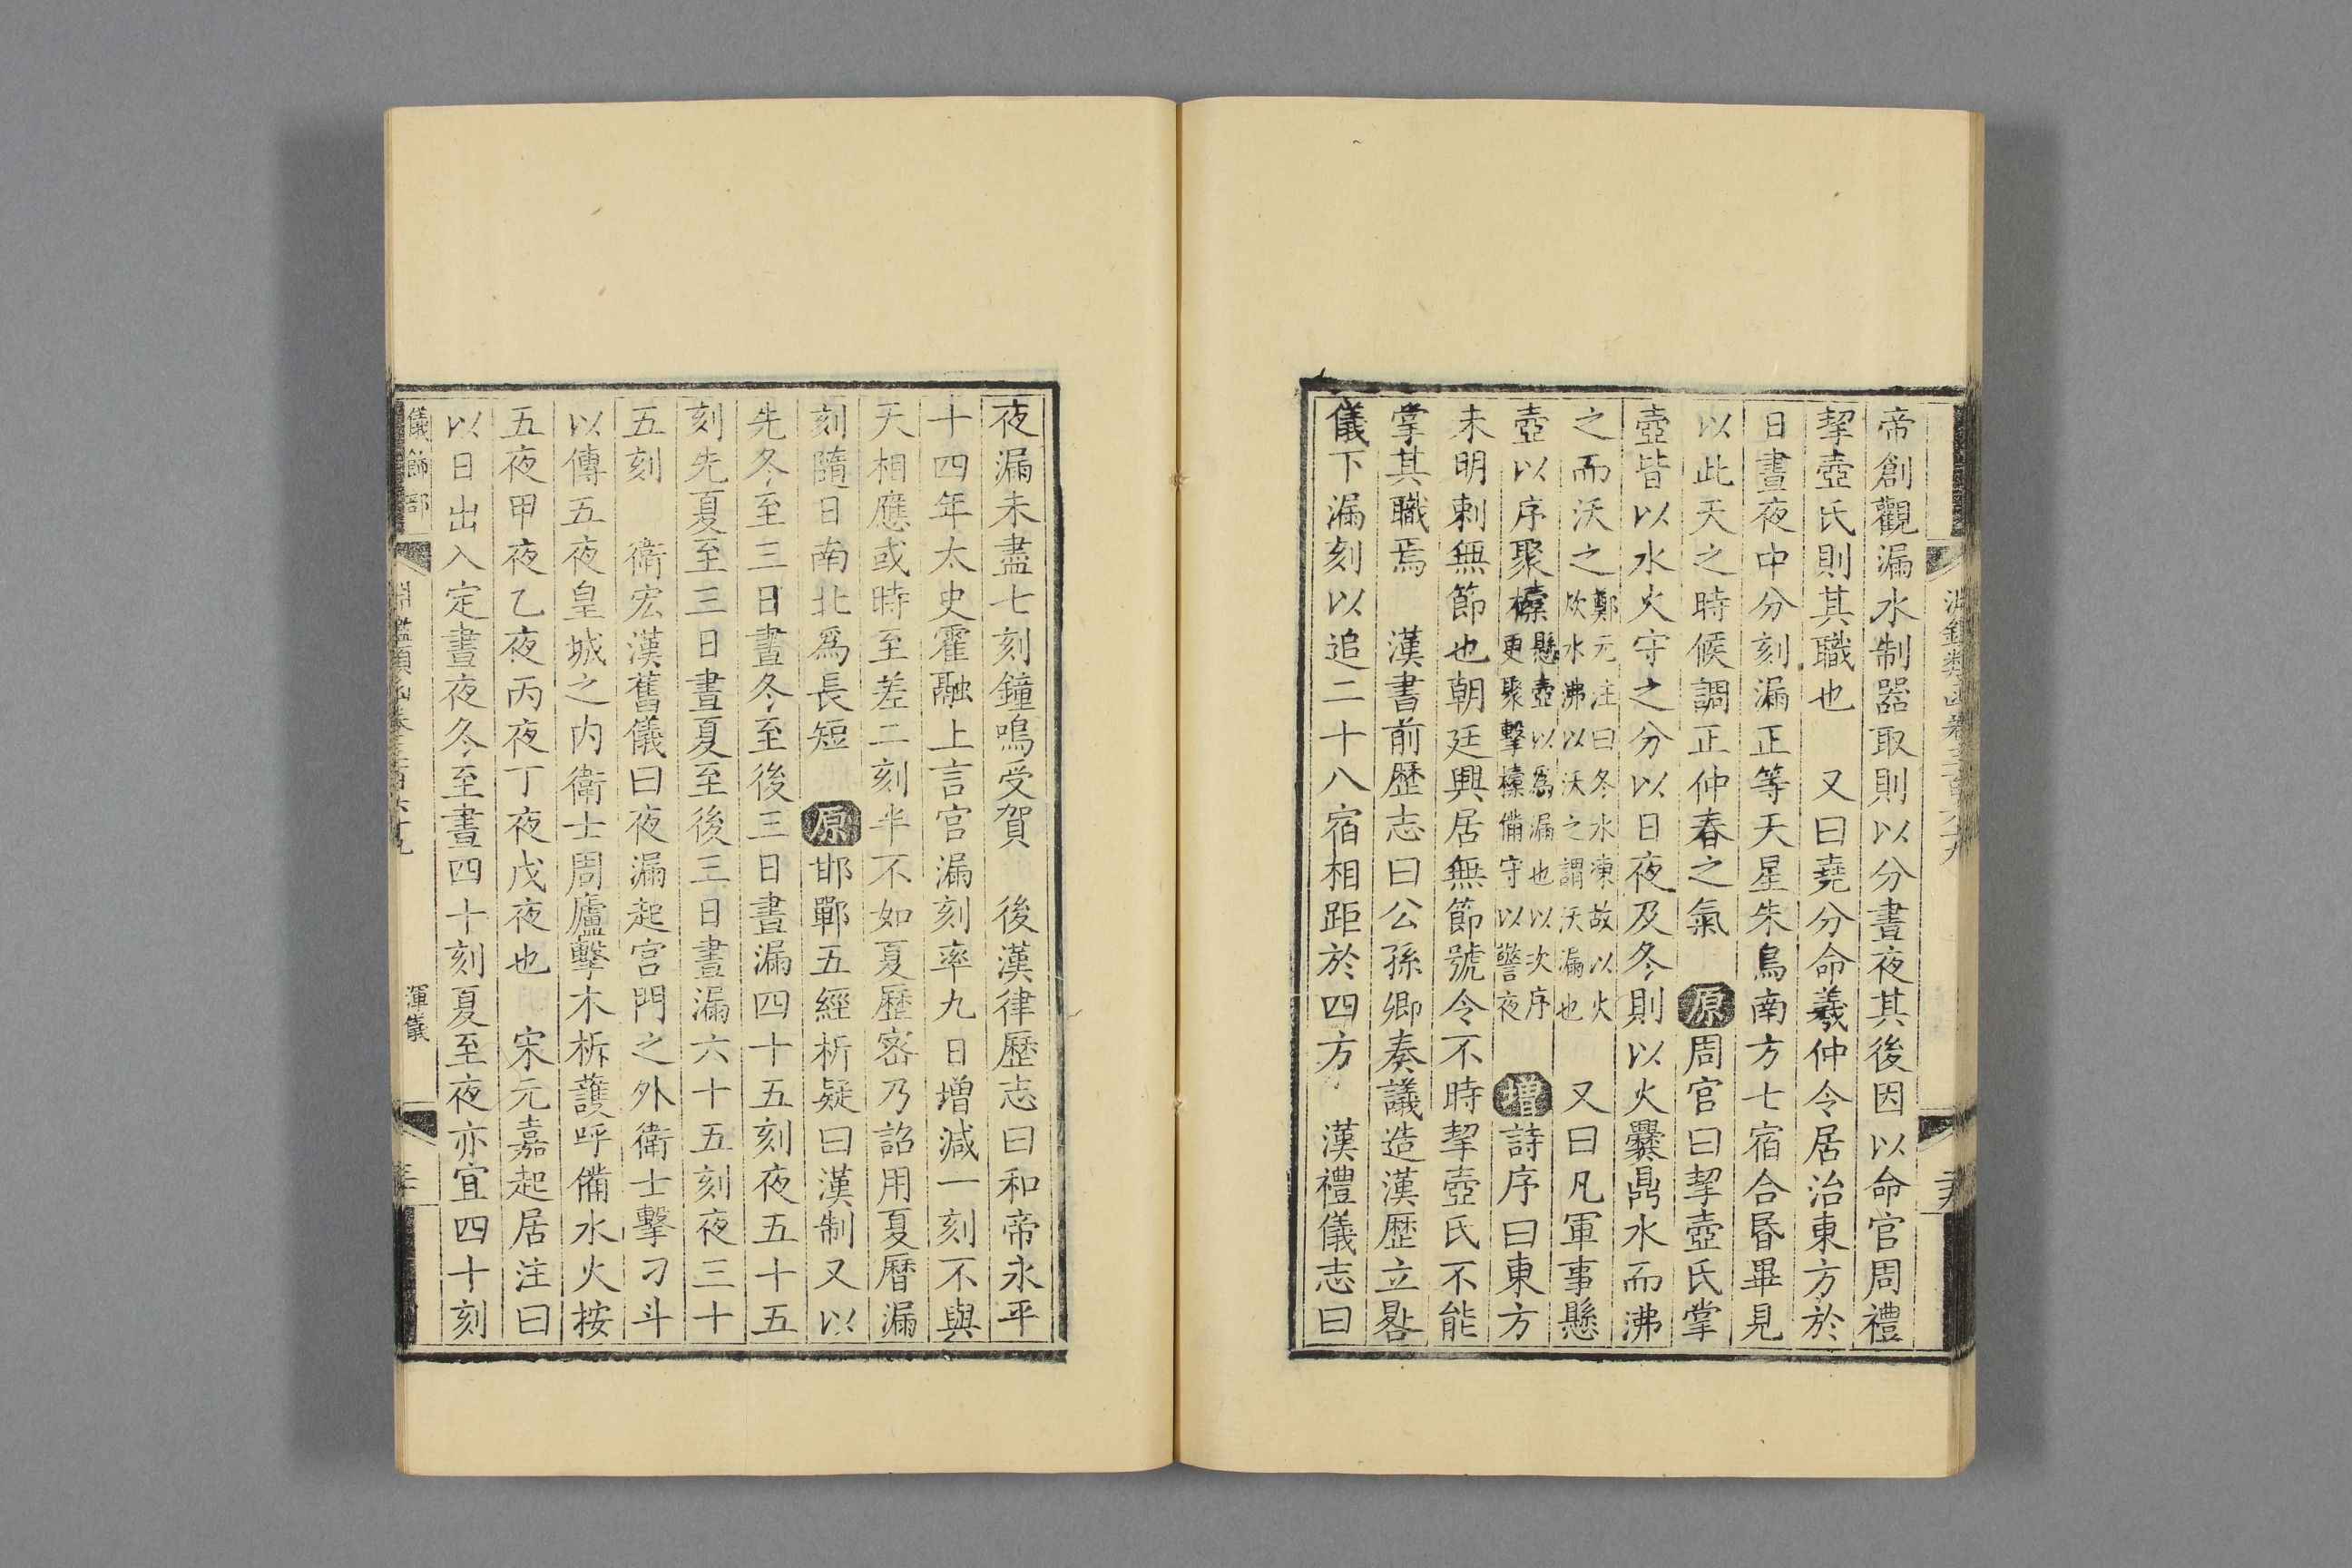 帝創觀漏水制器取則以分晝夜其後因以命官周禮
挈壺氏則其職也　又曰堯分命羲仲令居治東方於
日晝夜中分刻漏正等天星朱鳥南方七宿合昬畢見
以此天之時候調正仲春之氣　原周官曰挈壺氏掌
壺皆以水火守之分以日夜及冬則以火爨鼎水而沸
之而沃之鄭元注曰冬水凍故以火炊水沸以沃之謂沃漏也　又曰凡軍事懸
壺以序聚㯱懸壺以爲漏也以次序更聚擊㯱備守以警夜　增詩序曰東方
未明刺無節也朝廷興居無節號令不時挈壺氏不能
掌其職焉　漢書前歷志曰公孫卿奏議造漢歷立晷
儀下漏刻以追二十八宿相距於四方　漢禮儀志曰
夜漏未盡七刻鐘鳴受賀　後漢律歷志曰和帝永平
十四年太史霍融上言官漏刻率九日增減一刻不與
天相應或時至差二刻半不如夏歷密乃詔用夏曆漏
刻隨日南北爲長短　原邯鄲五經析疑曰漢制又以
先冬至三日晝冬至後三日晝漏四十五刻夜五十五
刻先夏至三日晝夏至後三日晝漏六十五刻夜三十
五刻　衛宏漢舊儀曰夜漏起宮門之外衛士擊刁斗
以傳五夜皇城之內衛士周廬擊木柝護呼備水火按
五夜甲夜乙夜丙夜丁夜戊夜也　宋元嘉起居注曰
以日出入定晝夜冬至晝四十刻夏至夜亦宜四十刻
儀飾部　淵鑑類函卷三百六十九　渾儀